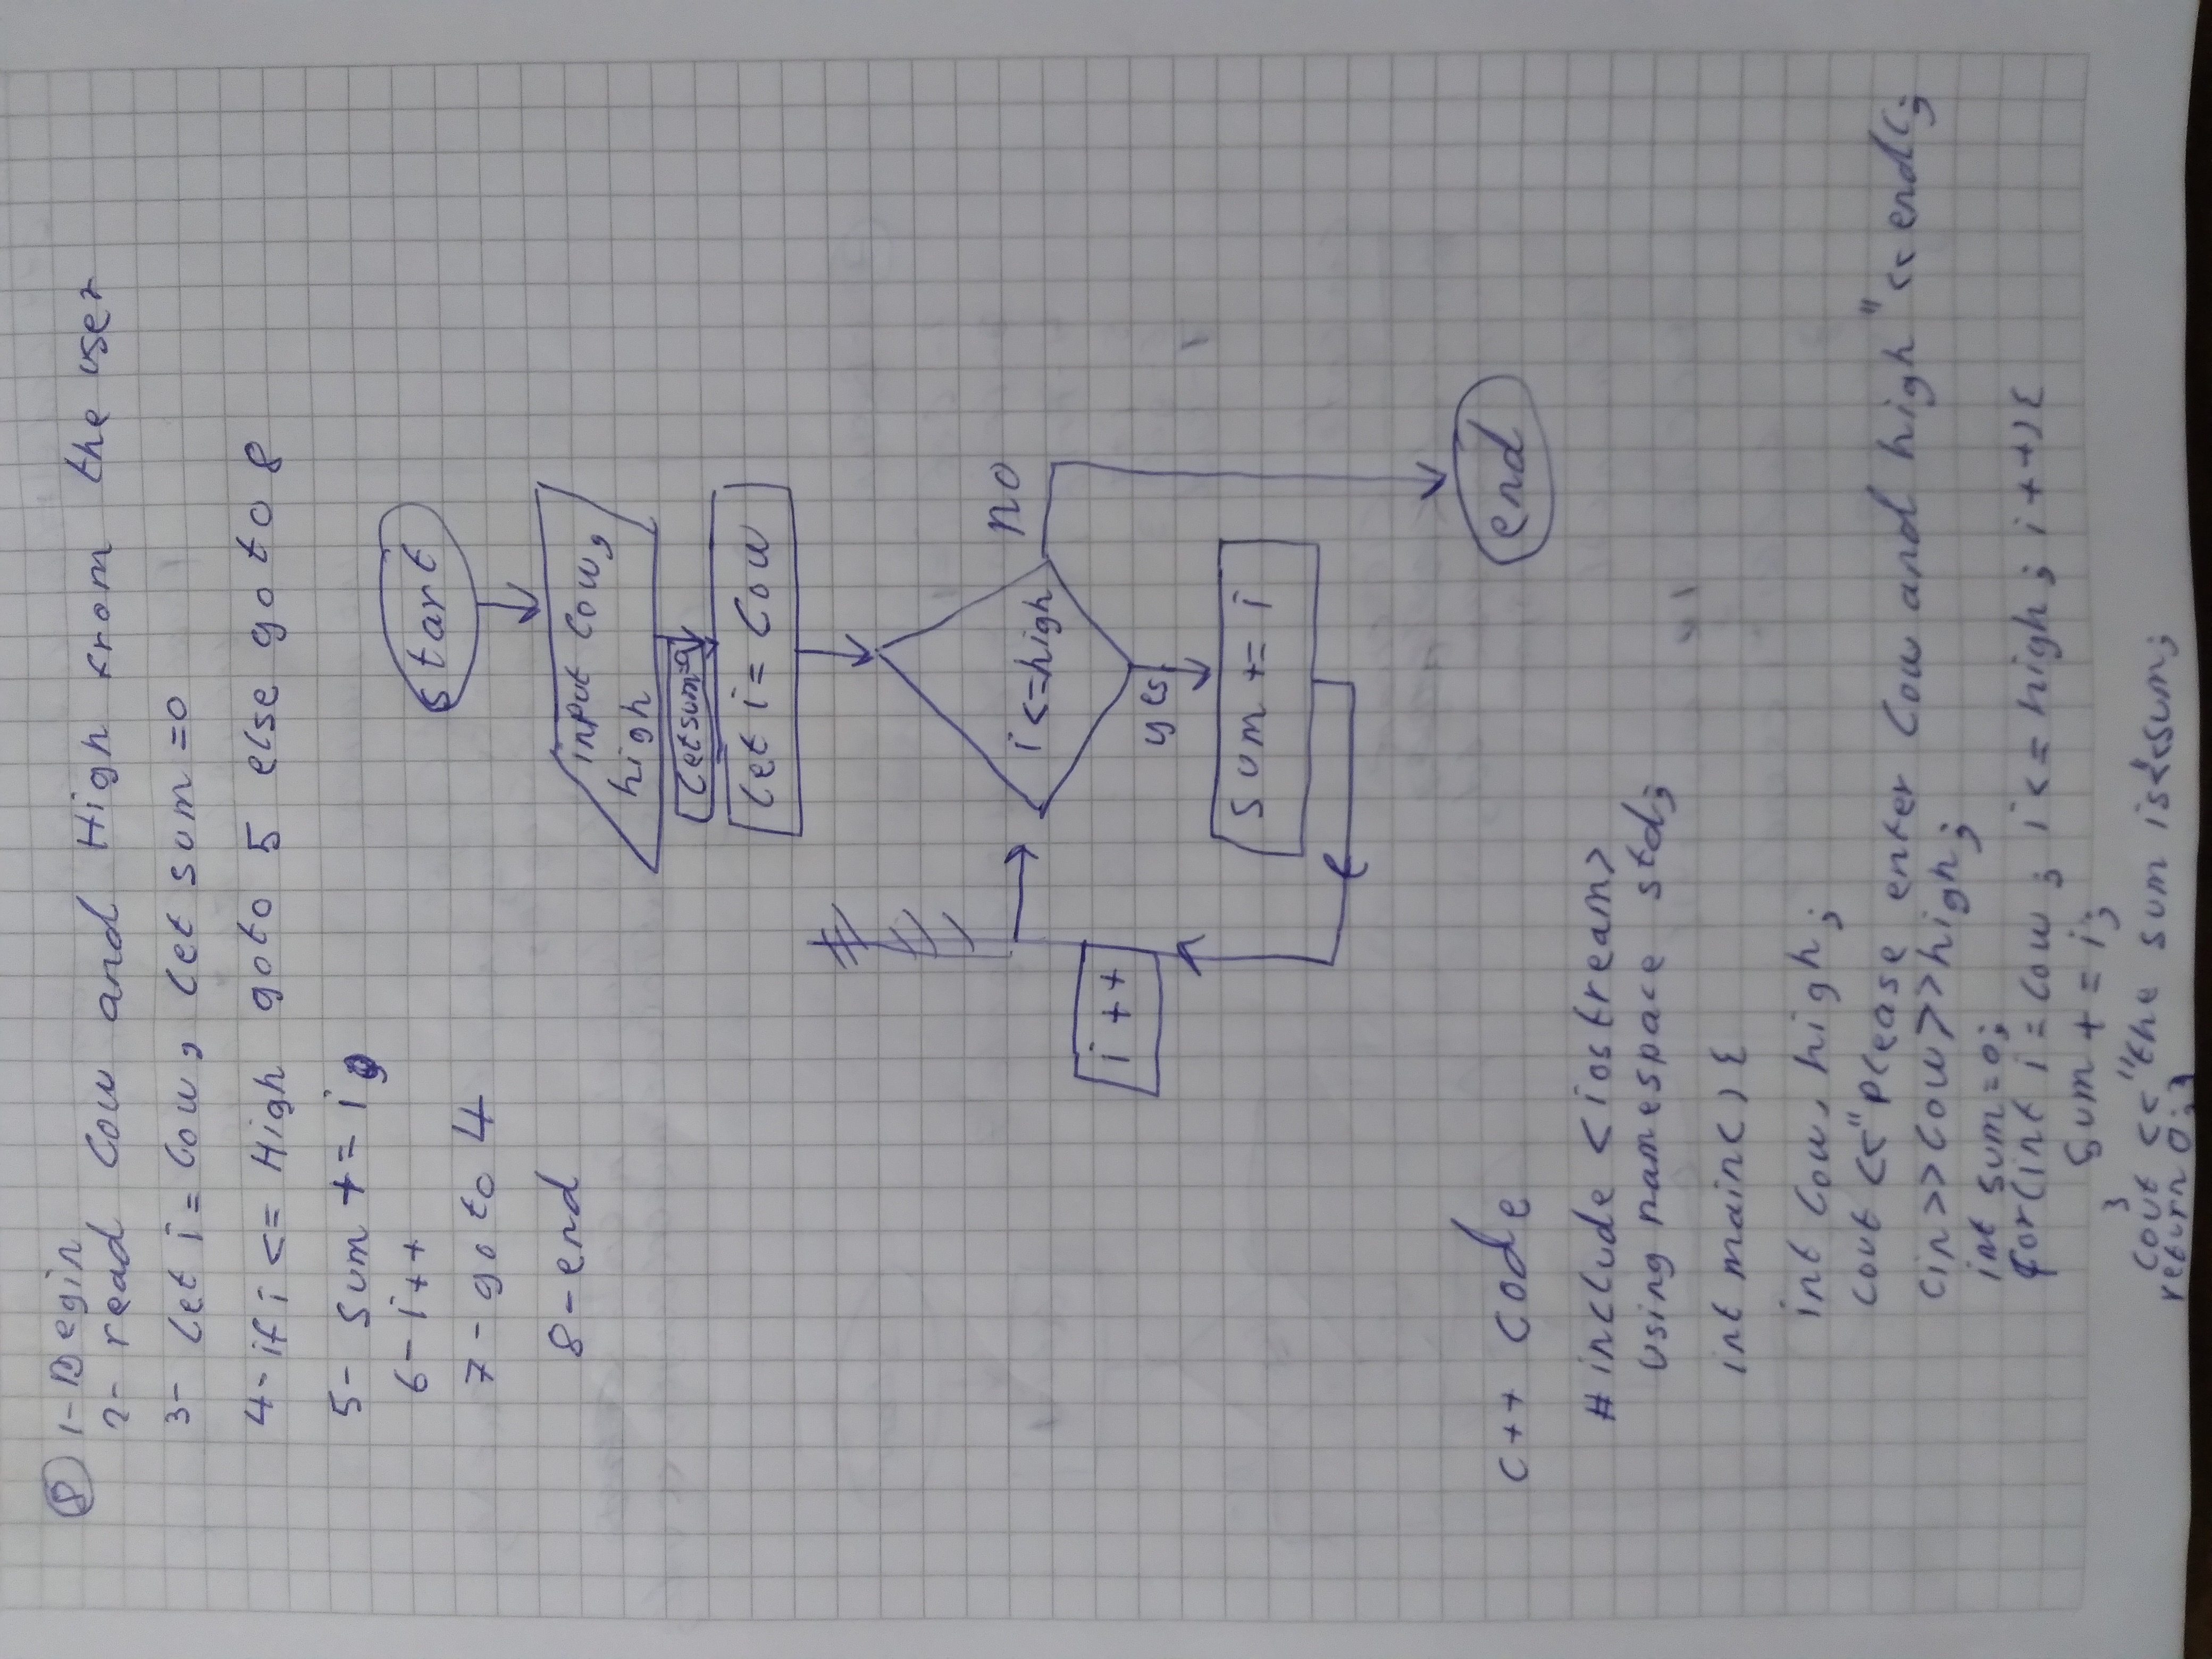 8 1- Begin
2- read Low and High from the user
3- Let i = Low, Let sum = 0
4- if i <= High go to 5 else go to 8
5- sum += i,
6- i++
7- go to 4
8- end
start
input Low,
high
Let sum=0
Let i = Low
i <= high
no
i ++
yes
sum += i
end
c++ code
# include <iostream>
using namespace std;
int main() {
int Low, high;
cout << "please enter Low and high" << endl;
cin >> Low >> high;
int sum = 0;
for(int i = Low ; i <= high ; i ++) {
sum += i;
}
cout << "the sum is" << sum;
return 0; }